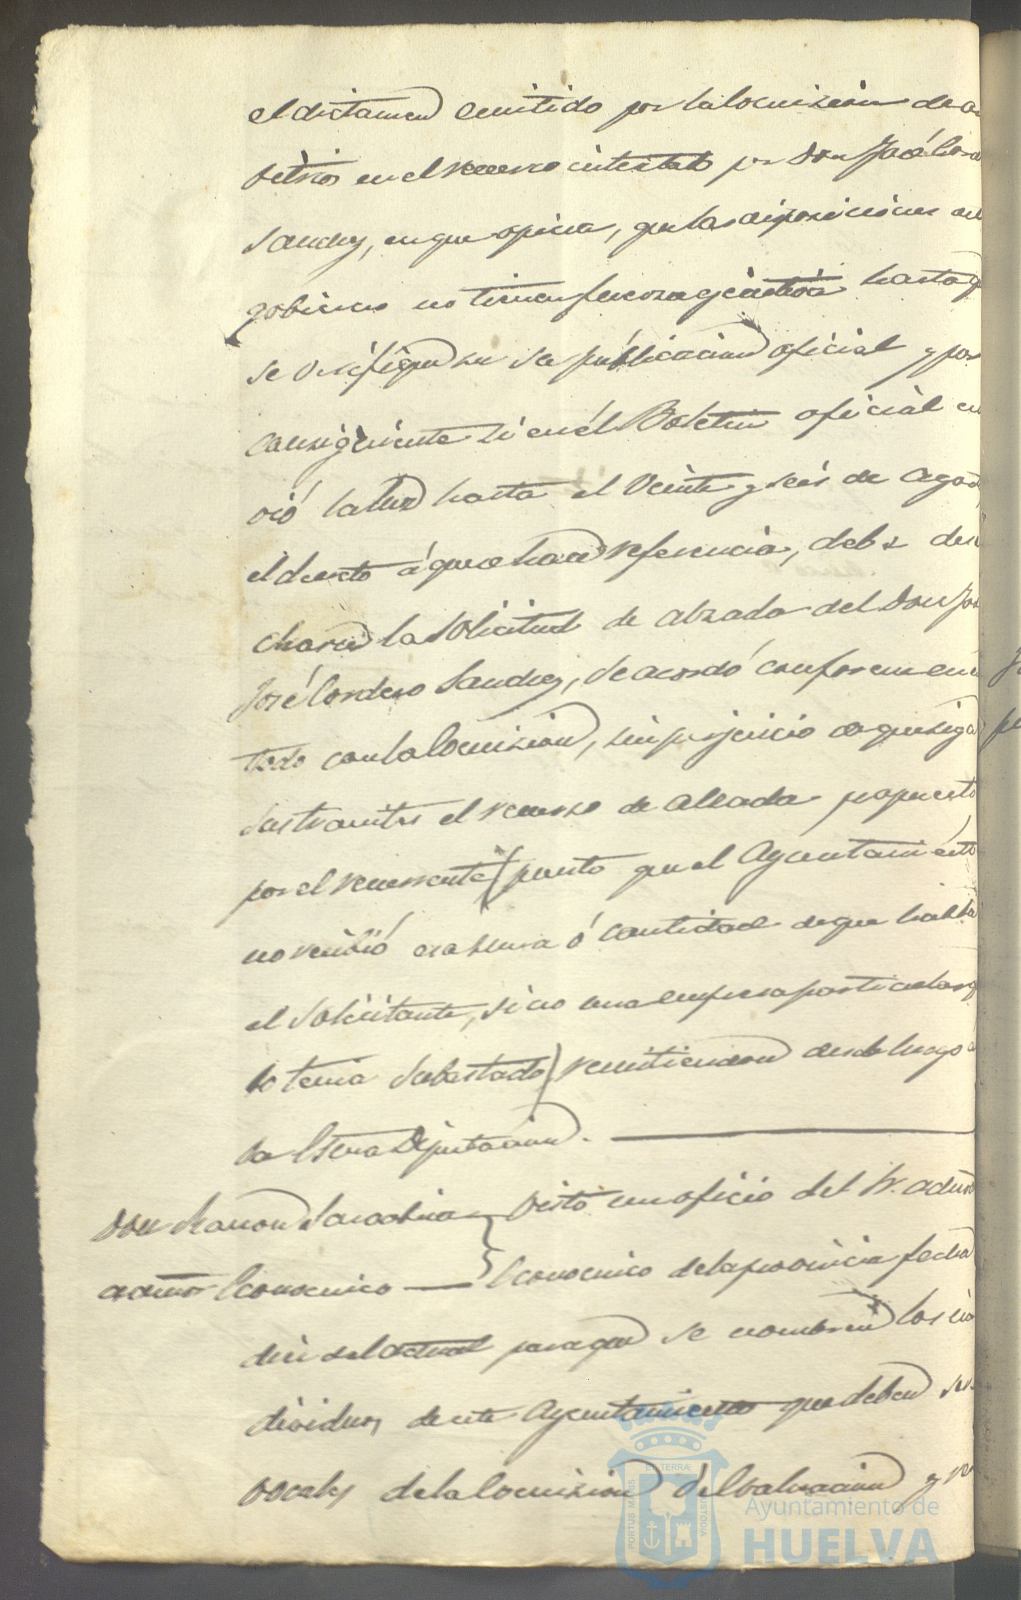 el dictamen emitido por la Comision de ar
vitrios en el recurso intentado por Don José Cordero
Sanchez, en que opina, que las disposiciones del
gobierno no tienen fuerza hasta q
se verifique su publicacion oficial y por
consiguiente si en el Boletin oficial no
vió la luz hasta el veinte y seis de agosto
el decreto á que hace referencia, debe dese
charse la solicitud de alzada del Don
José Cordero Sanchez, se acordó conformemen
todo con la Comision, sin perjuicio de que siga
sus tramites el recurso de alzada propuesto
por el recurrente (puesto que el Ayuntamiento
no recibió esa suma ó cantidad de que habla
el solicitante, sino una empresa particular q
lo tenia subastado) remitiendose desde luego a
la Escma Diputacion.
Don Ramon Visto un oficio del Sr. admor
admor Economico Economico de la provincia fecha
diez del actual para que se nombren los in
dividuos de este Ayuntamiento que deben ser
vocales de la Comision de Evaluacion y r
PORTUS MARIS
ET TERRÆ
CUSTODIA
Ayuntamiento de
HUELVA